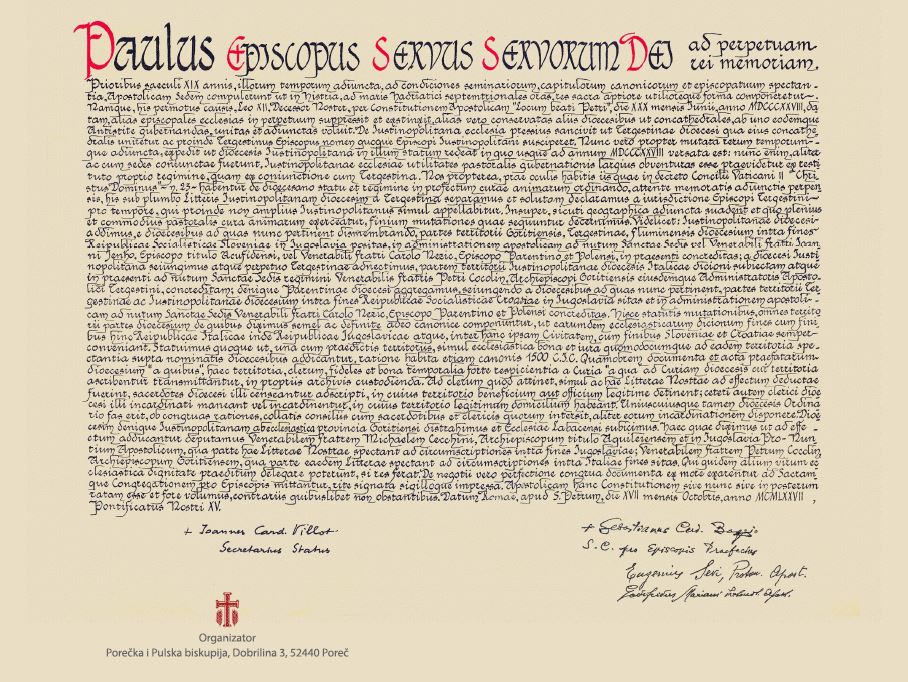 Paulus Episcopus Servus Servorum Dei ad perpetuam
rei memoriam.
Prioribus saeculi XIX annis, illorum temporum adiuncta, ad condiciones seminariorum, capitulorum canonicorum et episcopatuum spectan-
tia, Apostolicam Sedem compulerunt ut in Histria, ad maris Hadriatici septentrionales oras, res sacra aptiore utilioreque forma componeretur.
Namque, his permotus causis, Leo XII, Decessor Noster, per Constitutionem Apostolicam "Locum beati Petri", die XXX mensis Iunii, anno MDCCCXXVIII, da
tam, alias episcopales ecclesias in perpetuum suppressit et exstinxit, alias vero conservatas aliis dioecesibus ut concathedrales, ab uno eodemque
Antistite gubernandas, unitas et adiunctas voluit. De Iustinopolitana ecclesia pressius sancivit ut Tergestinae dioecesi qua eius concathe
dralis uniretur ac proinde Tergestinus Episcopus nomen quoque Episcopi Iustinopolitani susciperet. Nunc vero propter mutata rerum temporum-
que adiuncta, expedit ut dioecesis Iustinopolitana in illum statum redeat in quo usque ad annum MDCCCXXVIII versata est: nunc enim, aliter
ac cum sedes coniunctae fuerunt, Iustinopolitanae ecclesiae utilitates pastoralis gubernationis largius obventurae esse praevidetur ex resti
tuto proprio regimine, quam ex coniunctione cum Tergestina. Nos propterea, prae oculis habitis iis quae in decreto Concilii Vaticani II "Chri
stus Dominus" - n. 23 - habentur de dioecesano statu et regimine in profectum curae animarum ordinando, attente memoratis adiunctis perpen
sis, his sub plumbo Litteris Iustinopolitanam dioecesim a Tergestina separamus et solutam declaramus a iurisdictione Episcopi Tergestini
pro tempore, qui proinde non amplius Iustinopolitanus simul appellabitur. Insuper, sicuti geographica adiuncta suadent et quo plenius
et commodius pastoralis cura animarum exerceatur, finium mutationes quae sequuntur decernimus. Videlicet: Iustinopolitanae dioecesi
addimus, e dioecesibus ad quas nunc pertinent dismembrando, partes territorii Goritiensis, Tergestinae, Fluminensis dioecesium intra fines
Reipublicae Socialisticae Sloveniae in Iugoslavia positas, in administrationem apostolicam ad nutum Sanctae Sedis vel Venerabili fratri Ioan
ni Jenko, Episcopo titulo Acufidensi, vel Venerabili fratri Carolo Nezic, Episcopo Parentino et Polensi, in praesenti concreditas; a dioecesi Iusti
nopolitana seiungimus atque perpetuo Tergestinae adnectimus, partem territorii Iustinopolitanae dioecesis Italicae dicioni subiectam atque
in praesenti ad nutum Sanctae Sedis regimini Venerabilis fratris Petri Cocolin, Archiepiscopi Goritiensis eiusdemque Administratoris Aposto-
lici Tergestini, concreditam; denique Parentinae dioecesi aggregamus, seiungendo a dioecesibus ad quas nunc pertinent, partes territorii Ter
gestinae ac Iustinopolitanae dioecesium intra fines Reipublicae Socialisticae Croatiae in Iugoslavia sitas et in administrationem apostoli-
cam ad nutum Sanctae Sedis Venerabili fratri Carolo Nezic, Episcopo Parentino et Polensi concreditas. Hisce statutis mutationibus, omnes territo
rii partes dioecesium de quibus diximus semel ac definite adeo canonice componuntur, ut earundem ecclesiasticarum dicionum fines cum fini,
bus hinc Reipublicae Italicae inde Reipublicae Iugoslavicae atque, inter hanc ipsam Civitatem, cum finibus Sloveniae et Croatiae semper
conveniant. Statuimus quoque ut, una cum praedictis territoriis, simul ecclesiastica bona et iura quomodocumque ad eadem territoria spe-
ctantia supra nominatis dioecesibus addicantur, ratione habita etiam canonis 1500 C.I.C. Quamobrem documenta et acta praefatarum
dioecesium "a quibus", haec territoria, clerum, fideles et bona temporalia forte respicientia a Curia "a qua" ad Curiam dioecesis cui territoria
ascribentur transmittantur, in propriis archivis custodienda. Ad clerum quod attinet, simul ac hae Litterae Nostrae ad effectum deductae
fuerint, sacerdotes dioecesi illi censeantur adscripti, in cuius territorio beneficium aut officium legitime detinent; ceteri autem clerici dioe
cesi illi incardinati maneant vel incardinentur, in cuius territorio legitimum domicilium habeant. Uniuscuiusque tamen dioecesis Ordina
rio fas erit, ob congruas rationes, collatis consiliis cum sacerdotibus et clericis quorum intersit, aliter eorum incardinationem disponere. Dioe
cesim denique Iustinopolitanam ab ecclesiastica provincia Goritiensi distrahimus et Ecclesiae Labacensi subicimus. Haec quae diximus ut ad effe -
ctum adducantur deputamus Venerabilem fratrem Michaelem Cecchini, Archiepiscopum titulo Aquileiensem et in Iugoslavia Pro-Nun
tium Apostolicum, qua parte hae Litterae Nostrae spectant ad circumscriptiones intra fines Iugoslaviae; Venerabilem fratrem Petrum Cocolin,
Archiepiscopum Goritiensem, qua parte eaedem Litterae spectant ad circumscriptiones intra Italiae fines sitas. Qui quidem alium virum ec
clesiastica dignitate praeditum delegare poterunt, si res ferat. De negotii vero perfectione congrua documenta ex more exarentur ad Sacram
que Congregationem pro Episcopis mittantur, rite signata sigilloque impressa. Apostolicam hanc Constitutionem sive nunc sive in posterum
ratam esse et fore volumus, contrariis quibuslibet non obstantibus. Datum Romae, apud S. Petrum, die XVII mensis Octobris, anno MCMLXXVII,
Pontificatus Nostri XV.
+ Ioannes Card. Villot
Secretarius Status
+ Sebastianus Card. Baggio
S. C. pro Episcopis Praefectus
Eugenius Sevi, Proton. Apost.
Organizator
Porečka i Pulska biskupija, Dobrilina 3, 52440 Poreč